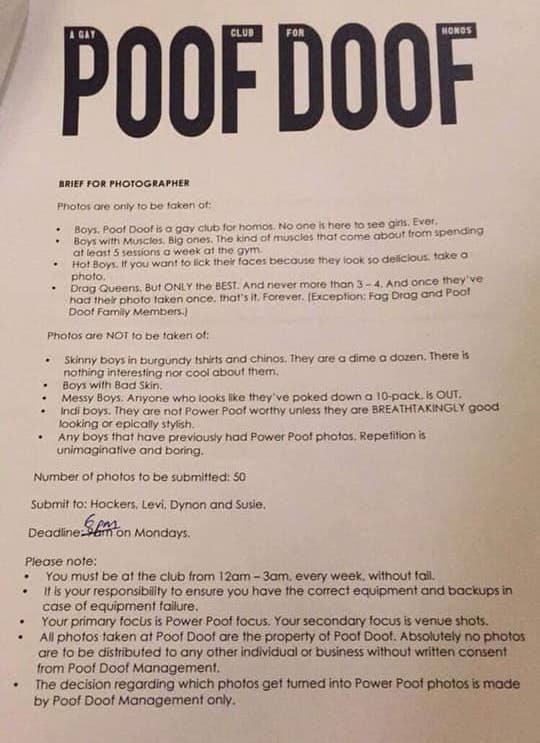 A GAY CLUB FOR HOMOS
POOF DOOF
BRIEF FOR PHOTOGRAPHER
Photos are only to be taken of:
• Boys. Poof Doof is a gay club for homos. No one is here to see girls. Ever.
• Boys with Muscles. Big ones. The kind of muscles that come about from spending
at least 5 sessions a week at the gym.
• Hot Boys. If you want to lick their faces because they look so delicious, take a
photo.
• Drag Queens. But ONLY the BEST. And never more than 3 – 4. And once they've
had their photo taken once, that's it. Forever. (Exception: Fag Drag and Poof
Doof Family Members.)
Photos are NOT to be taken of:
• Skinny boys in burgundy tshirts and chinos. They are a dime a dozen. There is
nothing interesting nor cool about them.
• Boys with Bad Skin.
• Messy Boys. Anyone who looks like they've poked down a 10-pack, is OUT.
• Indi boys. They are not Power Poof worthy unless they are BREATHTAKINGLY good
looking or epically stylish.
• Any boys that have previously had Power Poof photos. Repetition is
unimaginative and boring.
Number of photos to be submitted: 50
Submit to: Hockers, Levi, Dynon and Susie.
6pm
Deadline: on Mondays.
Please note:
• You must be at the club from 12am – 3am, every week, without fail.
• It is your responsibility to ensure you have the correct equipment and backups in
case of equipment failure.
• Your primary focus is Power Poof focus. Your secondary focus is venue shots.
• All photos taken at Poof Doof are the property of Poof Doof. Absolutely no photos
are to be distributed to any other individual or business without written consent
from Poof Doof Management.
• The decision regarding which photos get turned into Power Poof photos is made
by Poof Doof Management only.